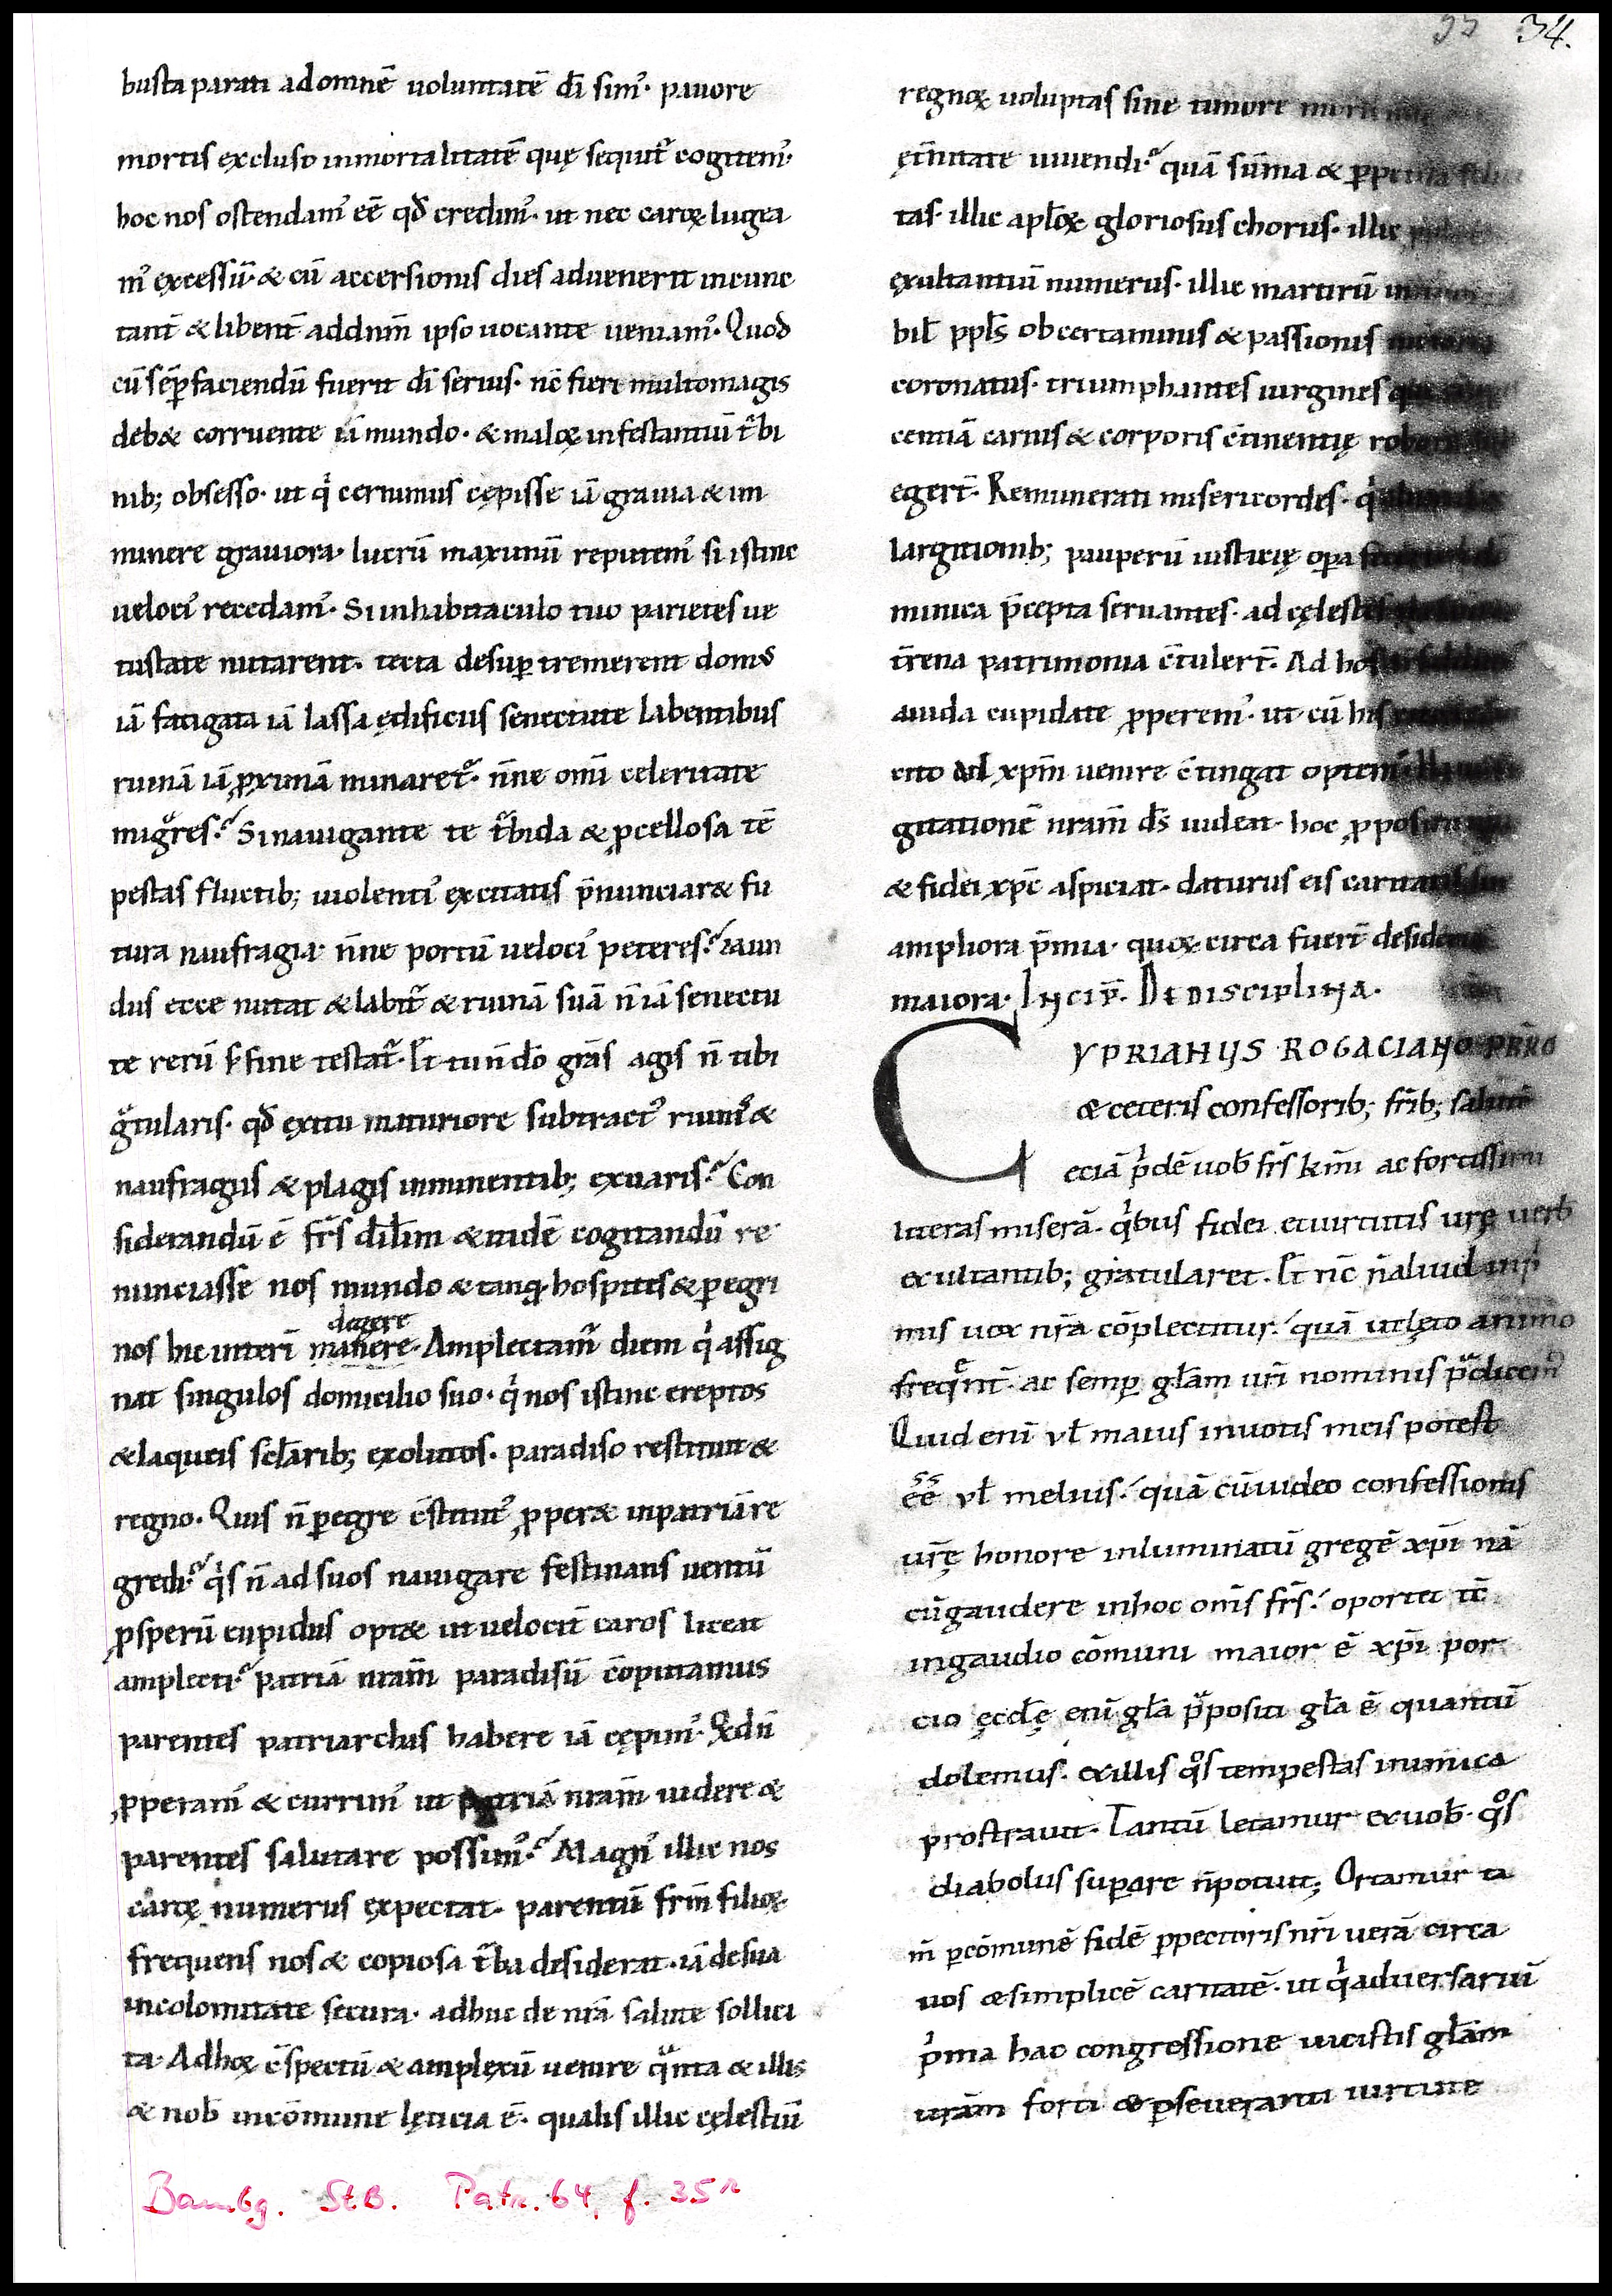 35 34.
busta parati adomnē uoluntatē dī simꝰ· pauore
mortis excluso inmortalitatē quę sequit᷑ cogitemꝰ·
hoc nos ostendamꝰ eē qđ credimꝰ· ut nec caroꝝ lugea
mꝰ excessū· & cū accersionis dies aduenerit incunc
tant̄ & libent̄ addnm̄ ipso uocante ueniamꝰ· Quod
cū sēp faciendū fuerit dī seruis· nc̄ fieri multomagis
deb& corruente iā mundo· & maloꝝ infestantiū t᷑bi
nib; obsesso· ut qͥ cernimus cępisse iā grauia & im
minere grauiora· lucrū maximū reputemꝰ si istinc
uelociꝰ recedamꝰ· Si inhabitaculo tuo parietes ue
tustate nutarent· tecta desuꝑ tremerent domꝰ
iā fatigata iā lassa ędificiis senectute labentibus
ruinā iā ꝓximā minaret᷑· n̄ne omi celeritate
migͣres· Si nauigante te t᷑bida & ꝓcellosa tē
pestas fluctib; uiolentiꝰ excitatis p̄nunciar& fu
tura naufragia· n̄ne portū uelociꝰ peteres·
dus ecce nutat & labit᷑ & ruinā suā n̄ iā senectu
te rerū ſ fine testat᷑· Et tu n̄ dō grās agis n̄ tibi
gͣtularis· qđ exitu maturiore subtractꝰ ruinis &
naufragiis & plagis imminentib; exuaris· Con
siderandū ē frs̄ dilm̄ & itidē cogitandū re
nunciasse nos mundo & tanq̄ hospites & ꝑegri
degere
nos hic interī manere· Amplectam᷑ diem qͥ assig
nat singulos domicilio suo· qͥ nos istinc ereptos
& laqueis sclarib; exolutos· paradiso restituit &
regno· Quis n̄ ꝑegre c̄stitutꝰ ꝓper& inpatriā re
gredi· qͥs n̄ ad suos nauigare festinans uentū
ꝓsperū cupidus opt& ut uelocit̄ caros liceat
amplecti· patriā nram̄ paradisū cōputamus
parentes patriarchas habere iā cępimꝰ· Qͥd n̄
ꝓperamꝰ & currimꝰ ut patriā nram̄ uidere &
parentes salutare possimꝰ· Magnꝰ illic nos
caroꝝ numerus expectat· parentū frm̄ filioꝝ
frequens nos & copiosa t᷑ba desiderat· iā desua
incolomitate secura· adhuc de nrā salute sollici
ta· Adhoꝝ c̄spectū & amplexū uenire qͣnta & illis
& nob̄ incōmune lęticia ē· qualis illic cęlestiū
regnoꝝ uoluptas sine timore
ęt̄nitate uiuendi· quā sūma & ꝑpetua
tas· illic aplōꝝ gloriosus chorus· illic
exultantiū numerus· illic martirū
bil̄ ppls̄ ob certaminis & passionis
coronatus· triumphantes uirgines
centiā carnis & corporis c̄tinentię
egert̄· Remunerati misericordes·
largitionib; pauperū iusticię oꝑa
minica p̄cepta seruantes· ad cęlestes
tr̄ena patrimonia c̄tulert̄· Ad hos
auida cupidate ꝓperemꝰ· ut cū his
cito ad xpm̄ uenire c̄tingat optemꝰ
gitationē nram̄ ds̄ uideat· hoc ꝓpositū
& fidei xpc̄ aspiciat· daturus eis caritatis
ampliora p̄mia· quoꝝ circa fuert̄ desideria
maiora· INCIP̄· DE DISCIPLINA·
CYPRIANUS ROGACIANO PRBRO
& ceteris confessorib; frīb; salutē
eciā pͥdē uob̄ frs̄ kmī ac fortissimi
litteras miserā· qͥbus fidei et uirtutis urę uerb̄
exultantib; gratularer· Et nc̄ n̄ aliud
mis uox nrā cōplectitur· quā ut lęto animo
freqͣnt̄· ac semꝑ glām uri nominis pͣdicem᷑
Quid enī ul̄ maius inuotis meis potest
eē ul̄ melius· quā cū uideo confessionis
urę honore inluminatū gregē xpī nā
cū gaudere inhoc oms̄ frs̄· oportet tc̄
ingaudio cōmuni maior ē xpī por
cio ęcclę enī glā pͣpositi glā ē quantū
dolemus· exillis qͦs tempestas inimica
prostrauit· Tantū letamur exuob̄· qͦs
diabolus suꝑare n̄ potuit; Ortamur ta
m̄ ꝑ cōmunē fidē ꝑ pectoris nri uerā circa
uos & simplicē caritatē· ut qͥ aduersariū
pͥma hac congressione uicistis glām
urām forti & ꝑseueranti uirtute
Bambg. StB. Patr. 64, f. 35r